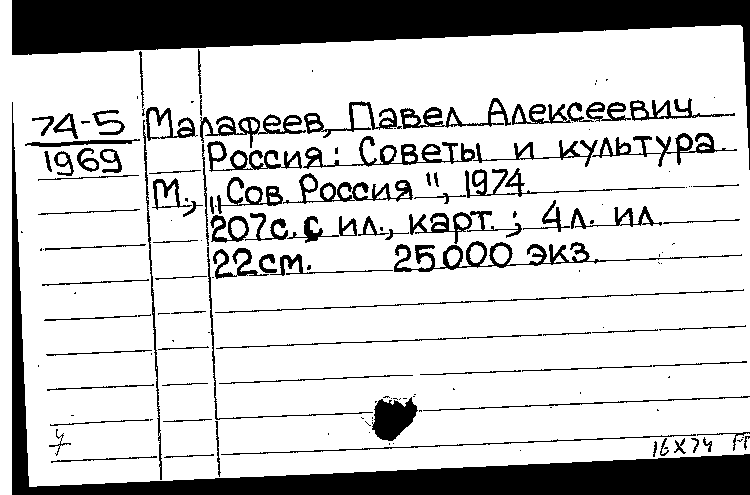 74-5
1969
Малафеев, Павел Алексеевич
Россия: Советы и культура.
М., „Сов. Россия", 1974.
207с. с ил., карт.; 4л. ил.
22см. 25000 экз.
16X74